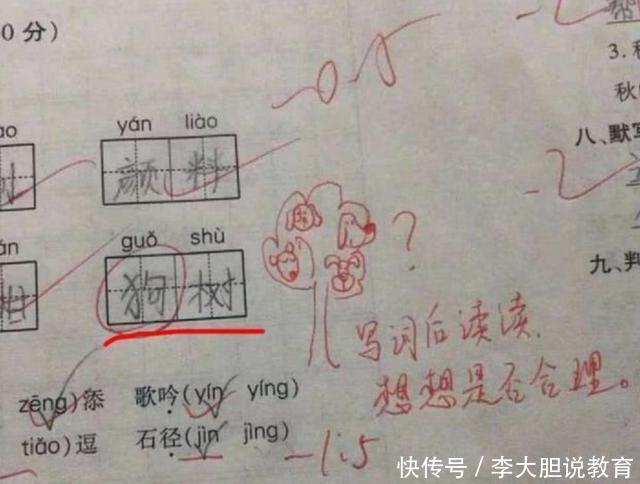 0 分）
-0.5
帮
ao
yán liào
颜料
3. 秋
秋
八、默写
树
án
guǒ shù
狗树
？
九、判
写词后读读，
想想是否合理。
zēng)添 歌吟(yín yíng)
tiǎo)逗 石径(jìn jìng)
-1.5
快传号／李大胆说教育